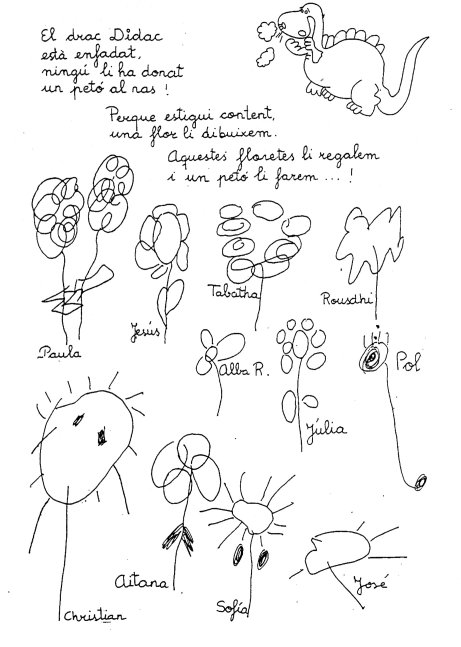 El drac Dídac
està enfadat,
ningú li ha donat
un petó al nas !
Perque estigui content,
una flor li dibuixem.
Aquestes floretes li regalem
i un petó li farem ... !
Tabatha
Rousdhi
Jesús
Paula
Alba R.
Pol
Júlia
Aitana
Christian
Sofía
José